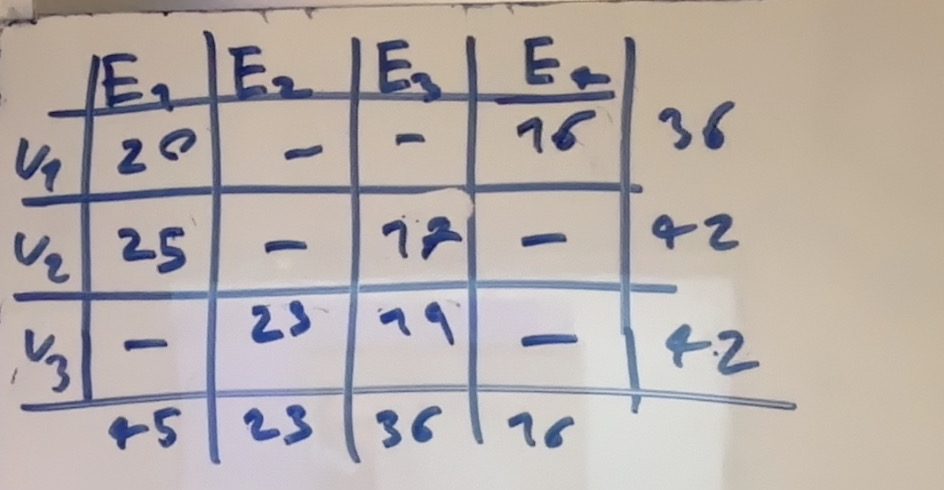 E1 E2 E3 E4
V1 20 - - 16 36
V2 25 - 17 - 42
V3 - 23 19 - 42
45 23 36 16